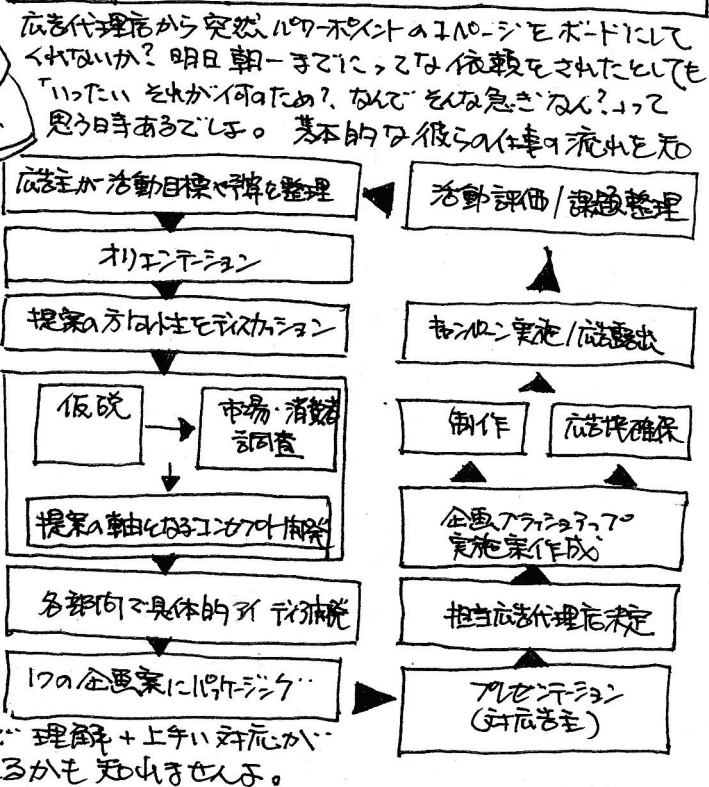 広告代理店から突然、パワーポイントの1ページをボードにして
くれないか?明日朝一までに、ってな依頼をされたとしても
「いったいそれが何のため?、なんでそんな急ぎなん?」って
思う日寺あるでしょ。基本的な彼らの仕事の流れを知
広告主が活動目標や予算を整理
オリエンテーション
提案の方向性をディスカッション
仮説
市場・消費者
調査
提案の軸となるコンセプト開発
各部門で具体的アイディア開発
1つの企画案にパッケージング
プレゼンテーション
(対広告主)
担当広告代理店決定
企画ブラッシュアップ
実施案作成
制作
広告枠確保
キャンペーン実施/広告露出
活動評価/課題整理
ど理解+上手い対応が
るかも知れませんよ。